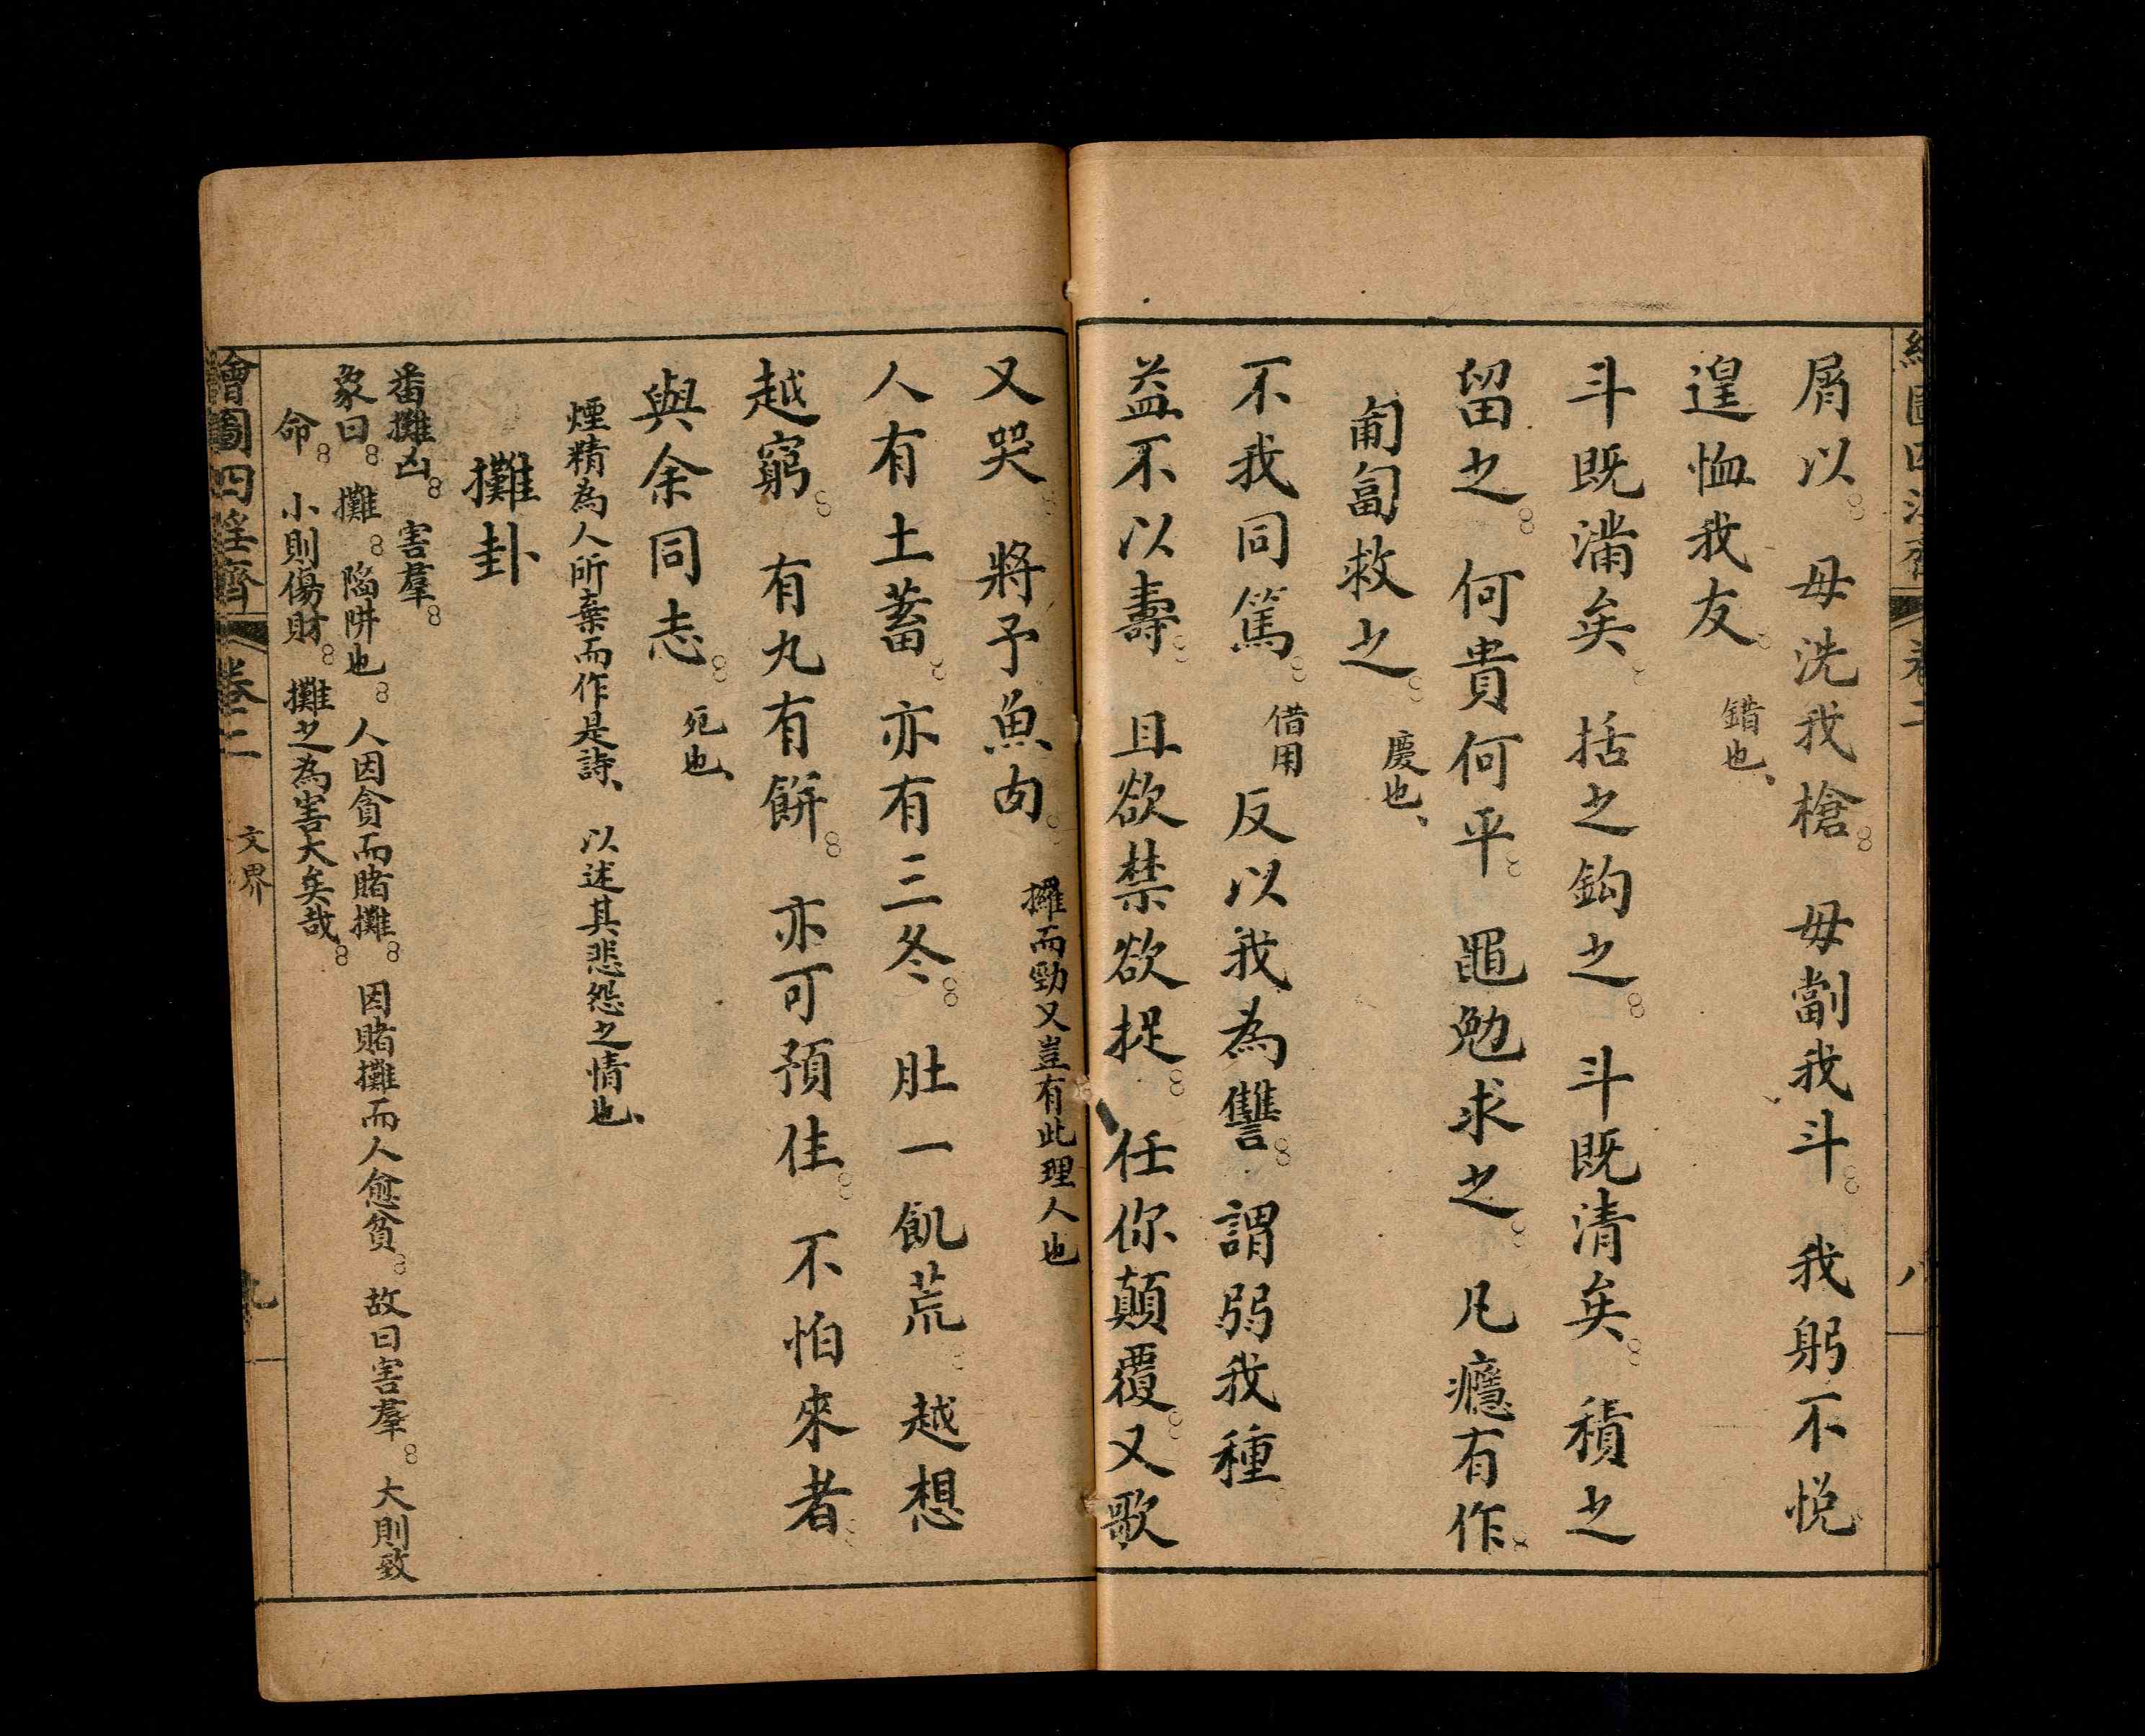 屑以 毋洗我槍 毋劏我斗 我躬不悅
遑恤我友 錯也
斗既滿矣 括之鈎之 斗既清矣 積之
留之 何貴何平 黽勉求之 凡癮有作
匍匐救之 慶也
不我同篤 借用 反以我為讐 謂弱我種
益不以壽 且欲禁欲捉 任你顛覆又歌
又哭 將予魚肉 㩜而勁又豈有此理人也
人有土蓄 亦有三冬 肚一飢荒 越想
越窮 有丸有餅 亦可預住 不怕來者
與余同志 死也
煙精為人所棄而作是詩 以述其悲怨之情也
攤卦
番攤凶 害羣
彖曰 攤 陷阱也 人因貪而賭攤 因賭攤而人愈貧 故曰害羣 大則致
命 小則傷財 攤之為害大矣哉
繪圖四淫齋 卷二 文界 九
卷二 八